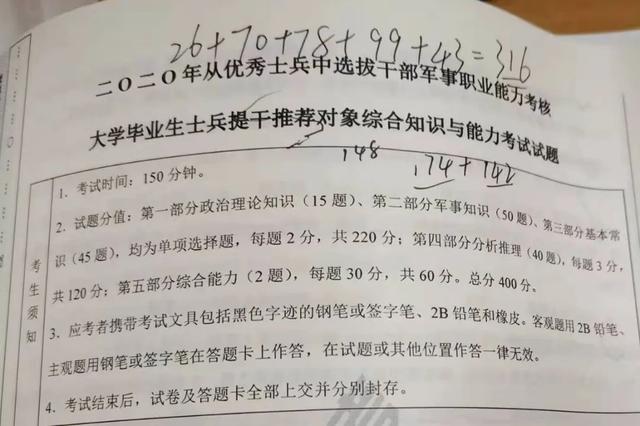 26+70+78+99+43=316
二〇二〇年从优秀士兵中选拔干部军事职业能力考核
大学毕业生士兵提干推荐对象综合知识与能力考试试题
148
174+142
考生须知
1．考试时间：150分钟。
2．试题分值：第一部分政治理论知识（15题）、第二部分军事知识（50题）、第三部分基本常
识（45题），均为单项选择题，每题2分，共220分；第四部分分析推理（40题），每题3分，
共120分；第五部分综合能力（2题），每题30分，共60分。总分400分。
3．应考者携带考试文具包括黑色字迹的钢笔或签字笔、2B铅笔和橡皮。客观题用2B铅笔、
主观题用钢笔或签字笔在答题卡上作答，在试题或其他位置作答一律无效。
4．考试结束后，试卷及答题卡全部上交并分别封存。